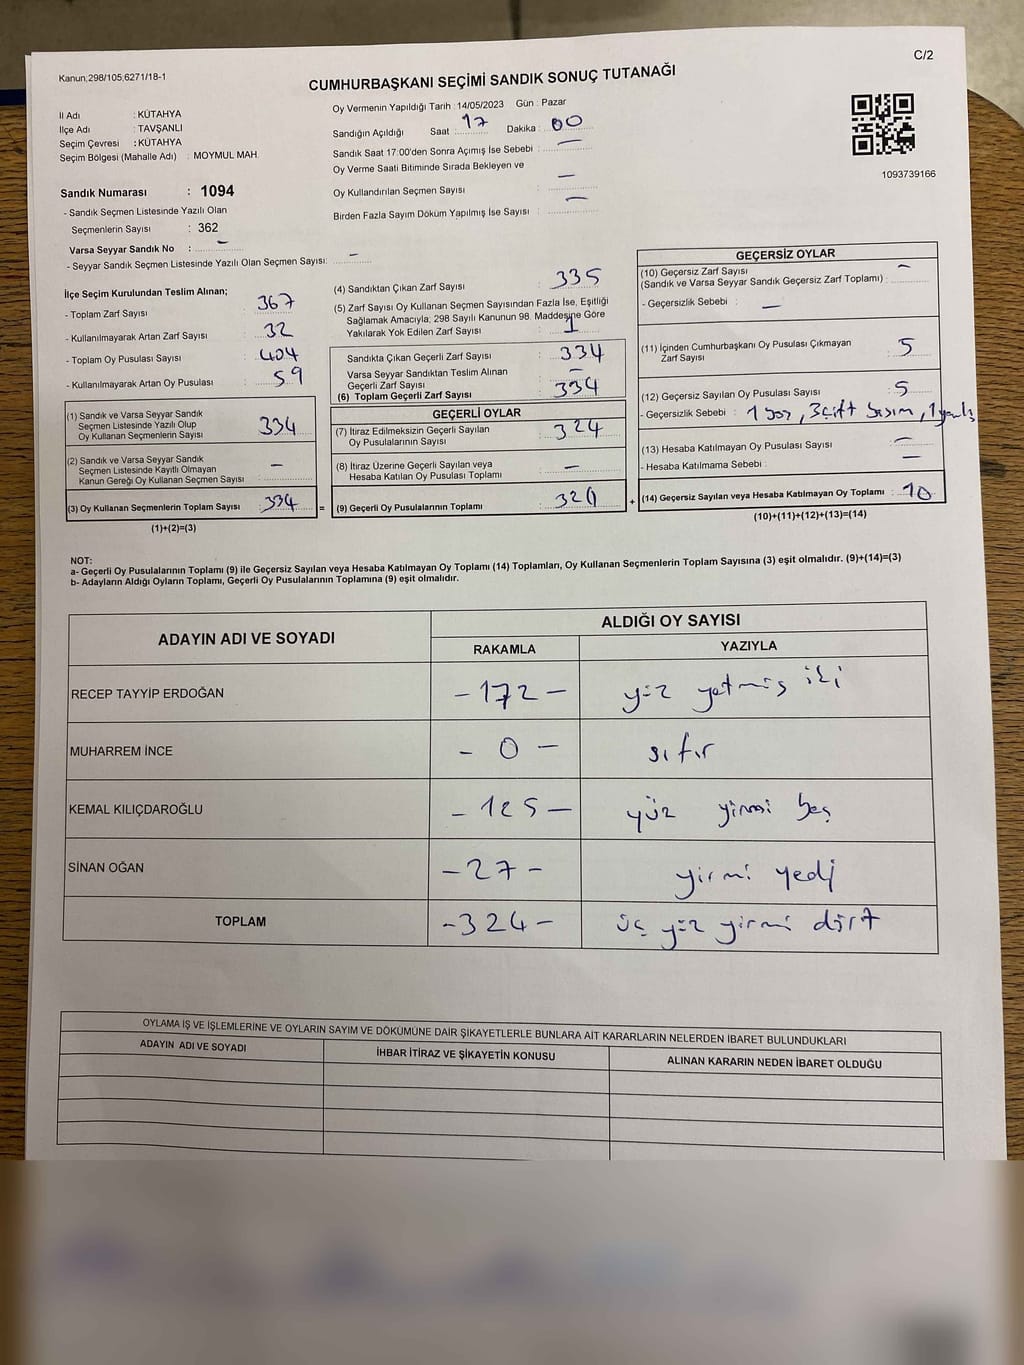 C/2
Kanun;298/105;6271/18-1
CUMHURBAŞKANI SEÇİMİ SANDIK SONUÇ TUTANAĞI
İl Adı : KÜTAHYA
İlçe Adı : TAVŞANLI
Seçim Çevresi : KÜTAHYA
Seçim Bölgesi (Mahalle Adı) : MOYMUL MAH.
Oy Vermenin Yapıldığı Tarih : 14/05/2023 Gün : Pazar
Sandığın Açıldığı Saat : 17 Dakika : 00
Sandık Saat 17:00'den Sonra Açımış İse Sebebi : —
Oy Verme Saati Bitiminde Sırada Bekleyen ve
Oy Kullandırılan Seçmen Sayısı : —
Birden Fazla Sayım Döküm Yapılmış İse Sayısı : —
1093739166
Sandık Numarası : 1094
- Sandık Seçmen Listesinde Yazılı Olan
Seçmenlerin Sayısı : 362
Varsa Seyyar Sandık No : —
- Seyyar Sandık Seçmen Listesinde Yazılı Olan Seçmen Sayısı: —
İlçe Seçim Kurulundan Teslim Alınan;
- Toplam Zarf Sayısı : 367
- Kullanılmayarak Artan Zarf Sayısı : 32
- Toplam Oy Pusulası Sayısı : 404
- Kullanılmayarak Artan Oy Pusulası : 59
(1) Sandık ve Varsa Seyyar Sandık
Seçmen Listesinde Yazılı Olup
Oy Kullanan Seçmenlerin Sayısı : 334
(2) Sandık ve Varsa Seyyar Sandık
Seçmen Listesinde Kayıtlı Olmayan
Kanun Gereği Oy Kullanan Seçmen Sayısı : —
(3) Oy Kullanan Seçmenlerin Toplam Sayısı : 334
(1)+(2)=(3)
(4) Sandıktan Çıkan Zarf Sayısı : 335
(5) Zarf Sayısı Oy Kullanan Seçmen Sayısından Fazla İse, Eşitliği
Sağlamak Amacıyla; 298 Sayılı Kanunun 98. Maddesine Göre
Yakılarak Yok Edilen Zarf Sayısı : 1
Sandıkta Çıkan Geçerli Zarf Sayısı : 334
Varsa Seyyar Sandıktan Teslim Alınan
Geçerli Zarf Sayısı : —
(6) Toplam Geçerli Zarf Sayısı : 334
GEÇERLİ OYLAR
(7) İtiraz Edilmeksizin Geçerli Sayılan
Oy Pusulalarının Sayısı : 324
(8) İtiraz Üzerine Geçerli Sayılan veya
Hesaba Katılan Oy Pusulası Toplamı : —
= (9) Geçerli Oy Pusulalarının Toplamı : 324 +
GEÇERSİZ OYLAR
(10) Geçersiz Zarf Sayısı —
(Sandık ve Varsa Seyyar Sandık Geçersiz Zarf Toplamı) :
- Geçersizlik Sebebi : —
(11) İçinden Cumhurbaşkanı Oy Pusulası Çıkmayan
Zarf Sayısı : 5
(12) Geçersiz Sayılan Oy Pusulası Sayısı : 5
- Geçersizlik Sebebi : 1 boş, 3 çift basım, 1 yanlış
(13) Hesaba Katılmayan Oy Pusulası Sayısı : —
- Hesaba Katılmama Sebebi : —
(14) Geçersiz Sayılan veya Hesaba Katılmayan Oy Toplamı : 10
(10)+(11)+(12)+(13)=(14)
NOT:
a- Geçerli Oy Pusulalarının Toplamı (9) ile Geçersiz Sayılan veya Hesaba Katılmayan Oy Toplamı (14) Toplamları, Oy Kullanan Seçmenlerin Toplam Sayısına (3) eşit olmalıdır. (9)+(14)=(3)
b- Adayların Aldığı Oyların Toplamı, Geçerli Oy Pusulalarının Toplamına (9) eşit olmalıdır.
ADAYIN ADI VE SOYADI
ALDIĞI OY SAYISI
RAKAMLA YAZIYLA
RECEP TAYYİP ERDOĞAN -172- yüz yetmiş iki
MUHARREM İNCE -0- sıfır
KEMAL KILIÇDAROĞLU -125- yüz yirmi beş
SİNAN OĞAN -27- yirmi yedi
TOPLAM -324- üç yüz yirmi dört
OYLAMA İŞ VE İŞLEMLERİNE VE OYLARIN SAYIM VE DÖKÜMÜNE DAİR ŞİKAYETLERLE BUNLARA AİT KARARLARIN NELERDEN İBARET BULUNDUKLARI
ADAYIN ADI VE SOYADI İHBAR İTİRAZ VE ŞİKAYETİN KONUSU ALINAN KARARIN NEDEN İBARET OLDUĞU